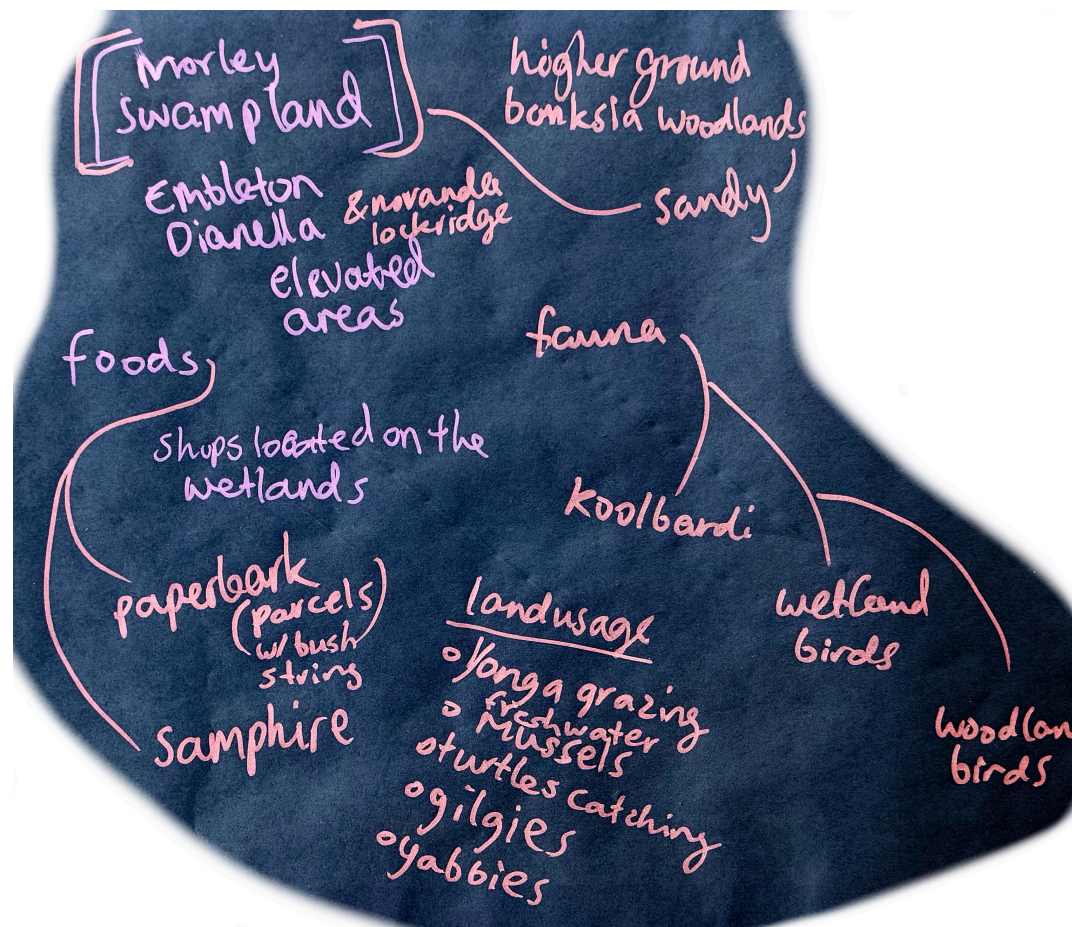 Morley
swampland
higher ground
banksia woodlands
sandy
Embleton
Dianella
& noranda
lockridge
elevated
areas
foods
fauna
shops located on the
wetlands
Koolbardi
paperbark
(parcels
w/ bush
string)
samphire
wetland
birds
woodlan
birds
landusage
Yonga grazing
freshwater
mussels
turtles catching
gilgies
yabbies